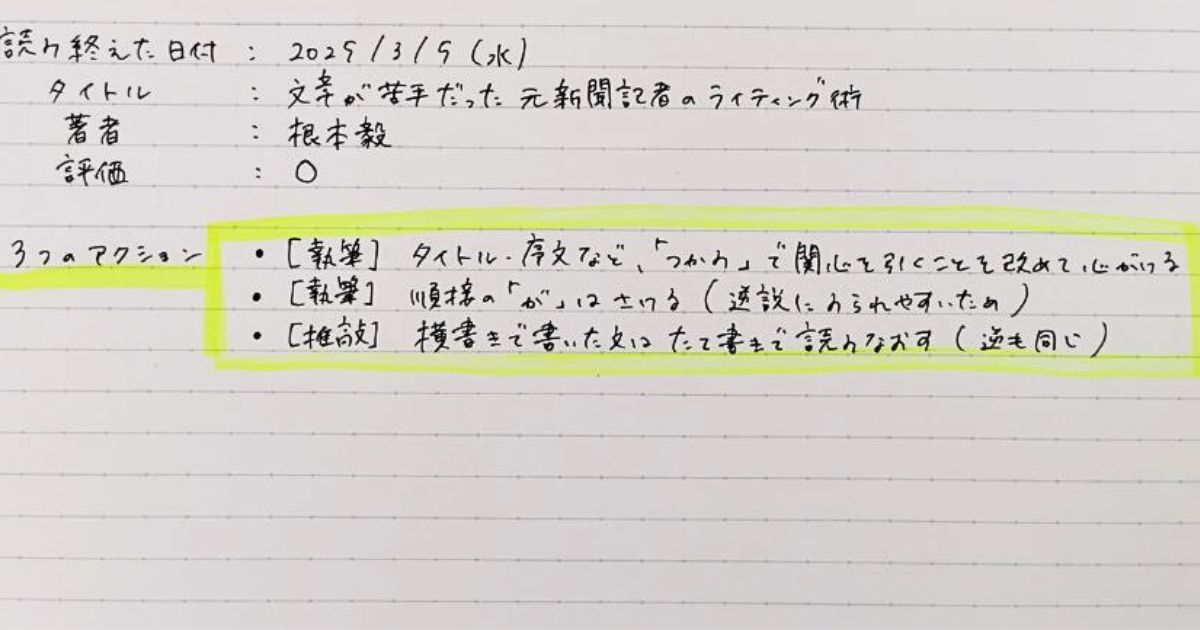 読み終えた日付 : 2025/3/5(水)
タイトル : 文章が苦手だった元新聞記者のライティング術
著者 : 根本毅
評価 : ○
3つのアクション ・[執筆] タイトル・序文など、「つかみ」で関心を引くことを改めて心がける
・[執筆] 順接の「が」はさける(逆説にみられやすいため)
・[推敲] 横書きで書いた文はたて書きで読みなおす(逆も同じ)